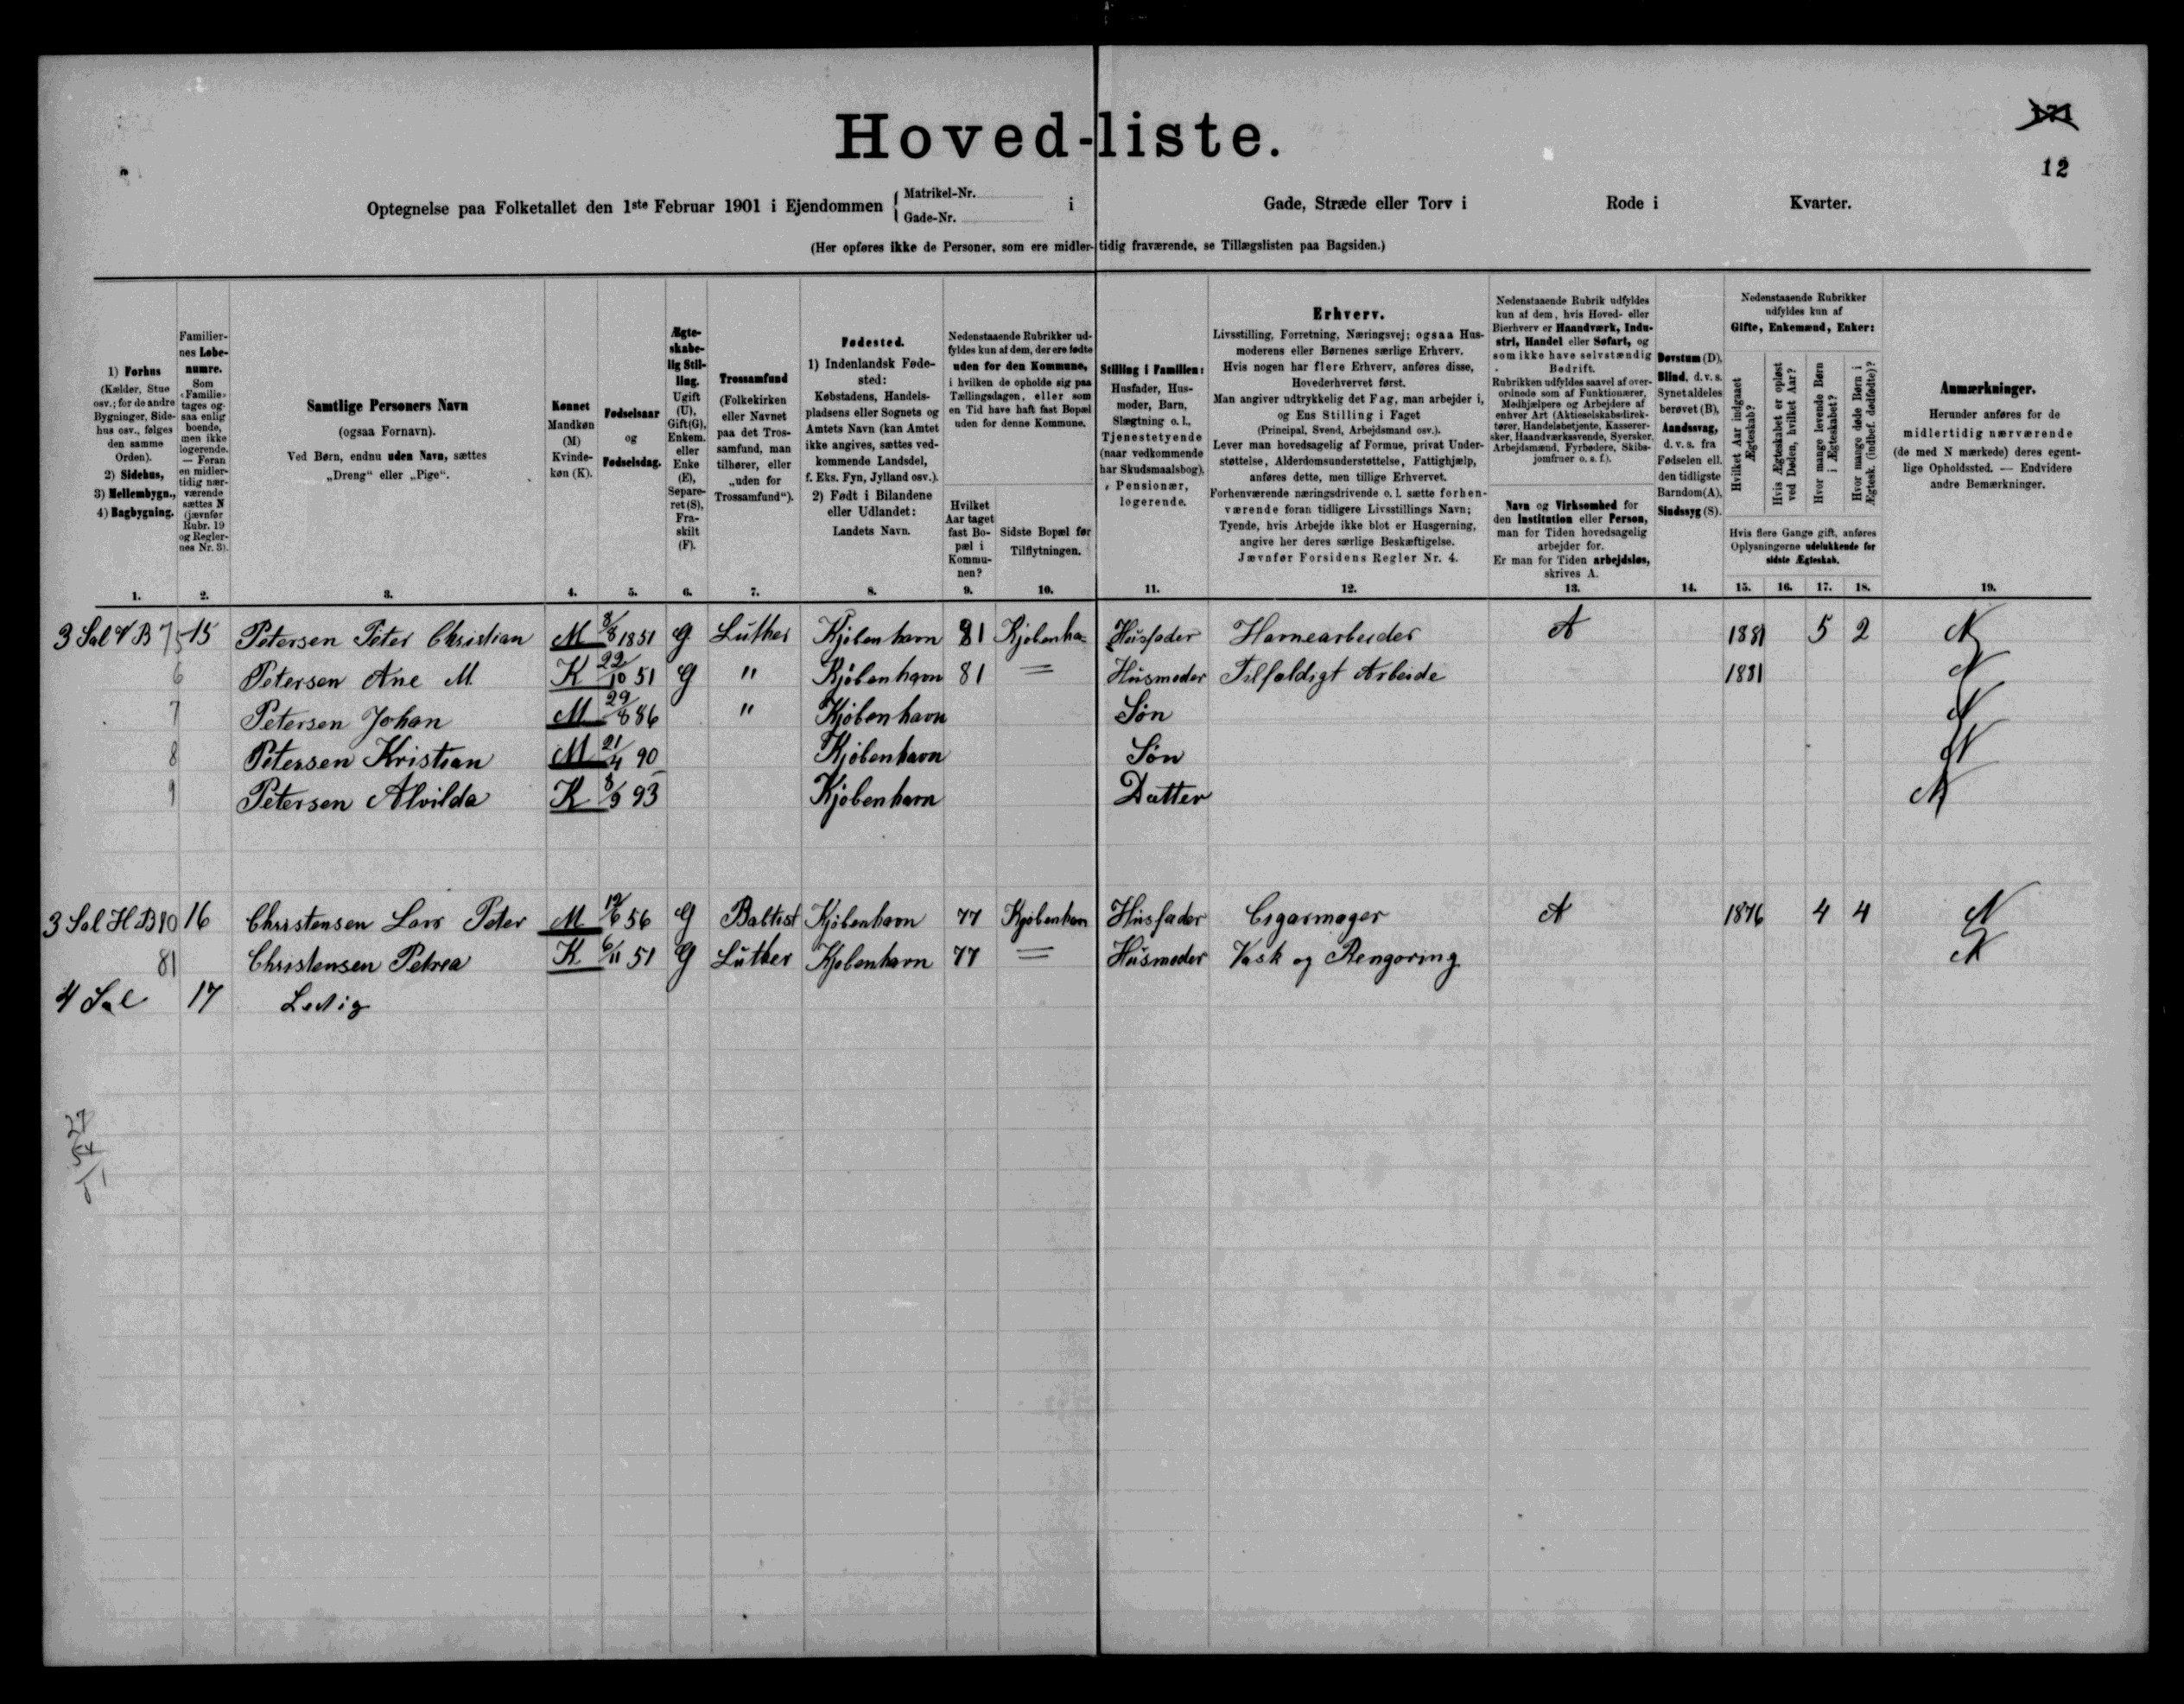 Hoved-liste.
171
12
Optegnelse paa Folketallet den 1ste Februar 1901 i Ejendommen { Matrikel-Nr. Gade-Nr. i Gade, Stræde eller Torv i Rode i Kvarter.
(Her opføres ikke de Personer, som ere midler-tidig fraværende, se Tillægslisten paa Bagsiden.)
1) Forhus
(Kælder, Stue
osv.; for de andre
Bygninger, Side-
hus osv., følges
den samme
Orden).
2) Sidehus,
3) Mellembygn.,
4) Bagbygning.
1.
Familier-
nes Løbe-
numre.
Som
«Familie»
tages og-
saa enlig
boende,
men ikke
logerende.
— Foran
en midler-
tidig nær-
værende
sættes N
(jævnfør
Rubr. 19
og Regler-
nes Nr. 3).
2.
Samtlige Personers Navn
(ogsaa Fornavn).
Ved Børn, endnu uden Navn, sættes
„Dreng“ eller „Pige“.
3.
Kønnet
Mandkøn
(M)
Kvinde-
køn (K).
4.
Fødselsaar
og
Fødselsdag.
5.
Ægte-
skabe-
lig Stil-
ling.
Ugift
(U),
Gift(G),
Enkem.
eller
Enke
(E),
Separe-
ret(S),
Fra-
skilt
(F).
6.
Trossamfund
(Folkekirken
eller Navnet
paa det Tros-
samfund, man
tilhører, eller
„uden for
Trossamfund“).
7.
Fødested.
1) Indenlandsk Føde-
sted:
Købstadens, Handels-
pladsens eller Sognets og
Amtets Navn (kan Amtet
ikke angives, sættes ved-
kommende Landsdel,
f. Eks. Fyn, Jylland osv.).
2) Født i Bilandene
eller Udlandet:
Landets Navn.
8.
Nedenstaaende Rubrikker ud-
fyldes kun af dem, der ere fødte
uden for den Kommune,
i hvilken de opholde sig paa
Tællingsdagen, eller som
en Tid have haft fast Bopæl
uden for denne Kommune.
Hvilket
Aar taget
fast Bo-
pæl i
Kommu-
nen?
9.
Sidste Bopæl før
Tilflytningen.
10.
Stilling i Familien:
Husfader, Hus-
moder, Barn,
Slægtning o. l.,
Tjenestetyende
(naar vedkommende
har Skudsmaalsbog),
Pensionær,
logerende.
11.
Erhverv.
Livsstilling, Forretning, Næringsvej; ogsaa Hus-
moderens eller Børnenes særlige Erhverv.
Hvis nogen har flere Erhverv, anføres disse,
Hovederhvervet først.
Man angiver udtrykkelig det Fag, man arbejder i,
og Ens Stilling i Faget
(Principal, Svend, Arbejdsmand osv.).
Lever man hovedsagelig af Formue, privat Under-
støttelse, Alderdomsunderstøttelse, Fattighjælp,
anføres dette, men tillige Erhvervet.
Forhenværende næringsdrivende o. l. sætte forhen-
værende foran tidligere Livsstillings Navn;
Tyende, hvis Arbejde ikke blot er Husgerning,
angive her deres særlige Beskæftigelse.
Jævnfør Forsidens Regler Nr. 4.
12.
Nedenstaaende Rubrik udfyldes
kun af dem, hvis Hoved- eller
Bierhverv er Haandværk, Indu-
stri, Handel eller Søfart, og
som ikke have selvstændig
Bedrift.
Rubrikken udfyldes saavel af over-
ordnede som af Funktionærer,
Medhjælpere og Arbejdere af
enhver Art (Aktieselskabsdirek-
tører, Handelsbetjente, Kasserer-
sker, Haandværkssvende, Syersker,
Arbejdsmænd, Fyrbødere, Skibs-
jomfruer o. s. f.).
Navn og Virksomhed for
den Institution eller Person,
man for Tiden hovedsagelig
arbejder for.
Er man for Tiden arbejdsløs,
skrives A.
13.
Døvstum (D),
Blind, d. v. s.
Synet aldeles
berøvet (B),
Aandssvag,
d. v. s. fra
Fødselen ell.
den tidligste
Barndom(A),
Sindssyg (S).
14.
Nedenstaaende Rubrikker
udfyldes kun af
Gifte, Enkemænd, Enker:
Hvilket Aar indgaaet
Ægteskab?
Hvis Ægteskabet er opløst
ved Døden, hvilket Aar?
Hvor mange levende Børn
i Ægteskabet?
Hvor mange døde Børn i
Ægtesk. (indbef. dødfødte)?
Hvis flere Gange gift, anføres
Oplysningerne udelukkende for
sidste Ægteskab.
15. 16. 17. 18.
Anmærkninger.
Herunder anføres for de
midlertidig nærværende
(de med N mærkede) deres egent-
lige Opholdssted. — Endvidere
andre Bemærkninger.
19.
3 Sal V B 75 15 Petersen Peter Christian M 8/8 1851 G Luther Kjöbenhavn 81 Kjöbenha Husfader Havnearbeider A 1881 5 2 N
6 Petersen Ane M. K 22/10 51 G " Kjöbenhavn 81 = Husmoder Tilfaldigt Arbeide 1881 N
7 Petersen Johan M 29/8 86 " Kjöbenhavn Søn N
8 Petersen Kristian M 21/4 90 Kjöbenhavn Søn N
9 Petersen Alvilda K 8/9 93 Kjöbenhavn Datter N
3 Sal H B 80 16 Christensen Lars Peter M 19/6 56 G Babtist Kjöbenhavn 77 Kjöbenhavn Husfader Cigarmager A 1876 4 4 N
81 Christensen Petrea K 6/11 51 G Luther Kjöbenhavn 77 = Husmoder Vask og Rengøring N
4 Sal 17 Ledig
27
54